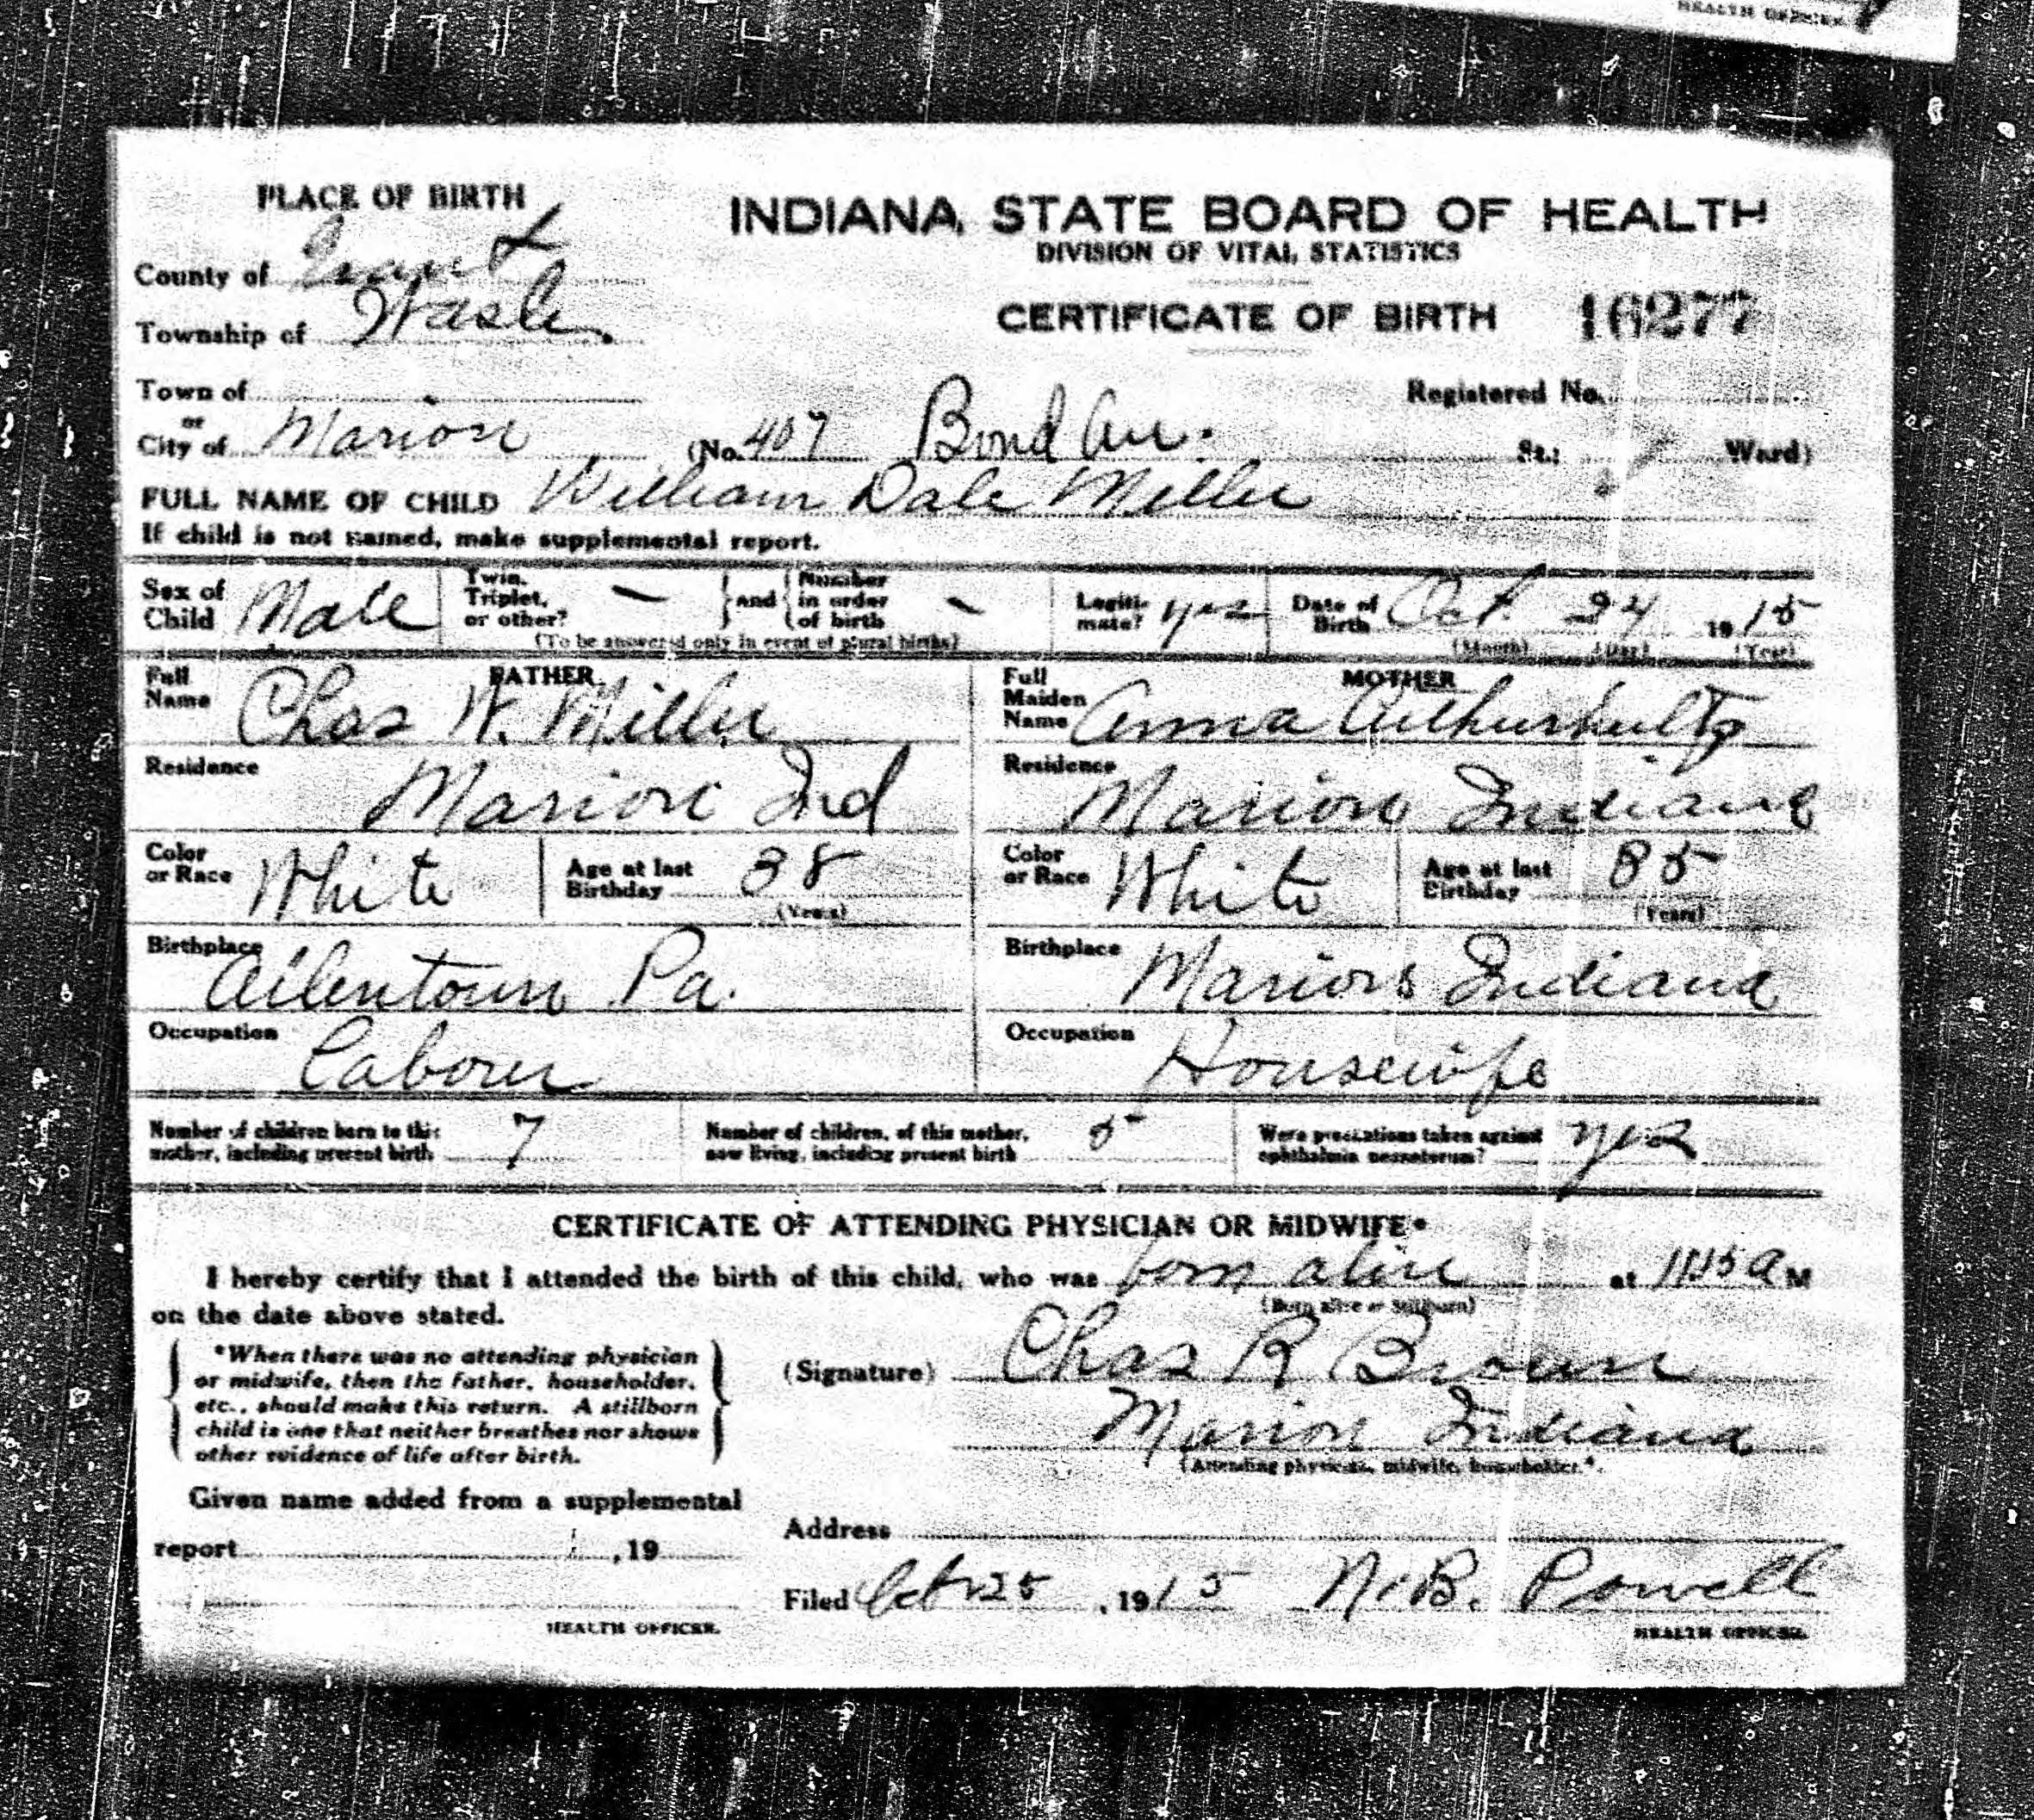 HEALTH OFFICER.
PLACE OF BIRTH
INDIANA STATE BOARD OF HEALTH
DIVISION OF VITAL STATISTICS
County of Grant
Township of Wash.
CERTIFICATE OF BIRTH 16277
Town of
Registered No.
or
City of Marion (No. 407 Bond Ave. St.; Ward)
FULL NAME OF CHILD William Dale Miller
If child is not named, make supplemental report.
Sex of Child Male
Twin, Triplet, or other? — and Number in order of birth -
(To be answered only in event of plural births)
Legitimate? yes
Date of Birth Oct. 24 1915
(Month) (Day) (Year)
FATHER
Full Name Chas W. Miller
Residence Marion Ind
Color or Race White
Age at last Birthday 38
(Years)
Birthplace Allentown Pa.
Occupation Laborer
MOTHER
Full Maiden Name Anna Arthurhultz
Residence Marion Indiana
Color or Race White
Age at last Birthday 35
(Years)
Birthplace Marion Indiana
Occupation Housewife
Number of children born to this mother, including present birth 7
Number of children, of this mother, now living, including present birth 5
Were precautions taken against ophthalmia neonatorum? yes
CERTIFICATE OF ATTENDING PHYSICIAN OR MIDWIFE*
I hereby certify that I attended the birth of this child, who was born alive at 11:15 A M
(Born alive or Stillborn)
on the date above stated.
*When there was no attending physician
or midwife, then the father, householder,
etc., should make this return. A stillborn
child is one that neither breathes nor shows
other evidence of life after birth.
(Signature) Chas R Brown
Marion Indiana
(Attending physician, midwife, householder.*)
Given name added from a supplemental
report , 19
HEALTH OFFICER.
Address
Filed Oct 25, 1915 N. B. Powell
HEALTH OFFICER.